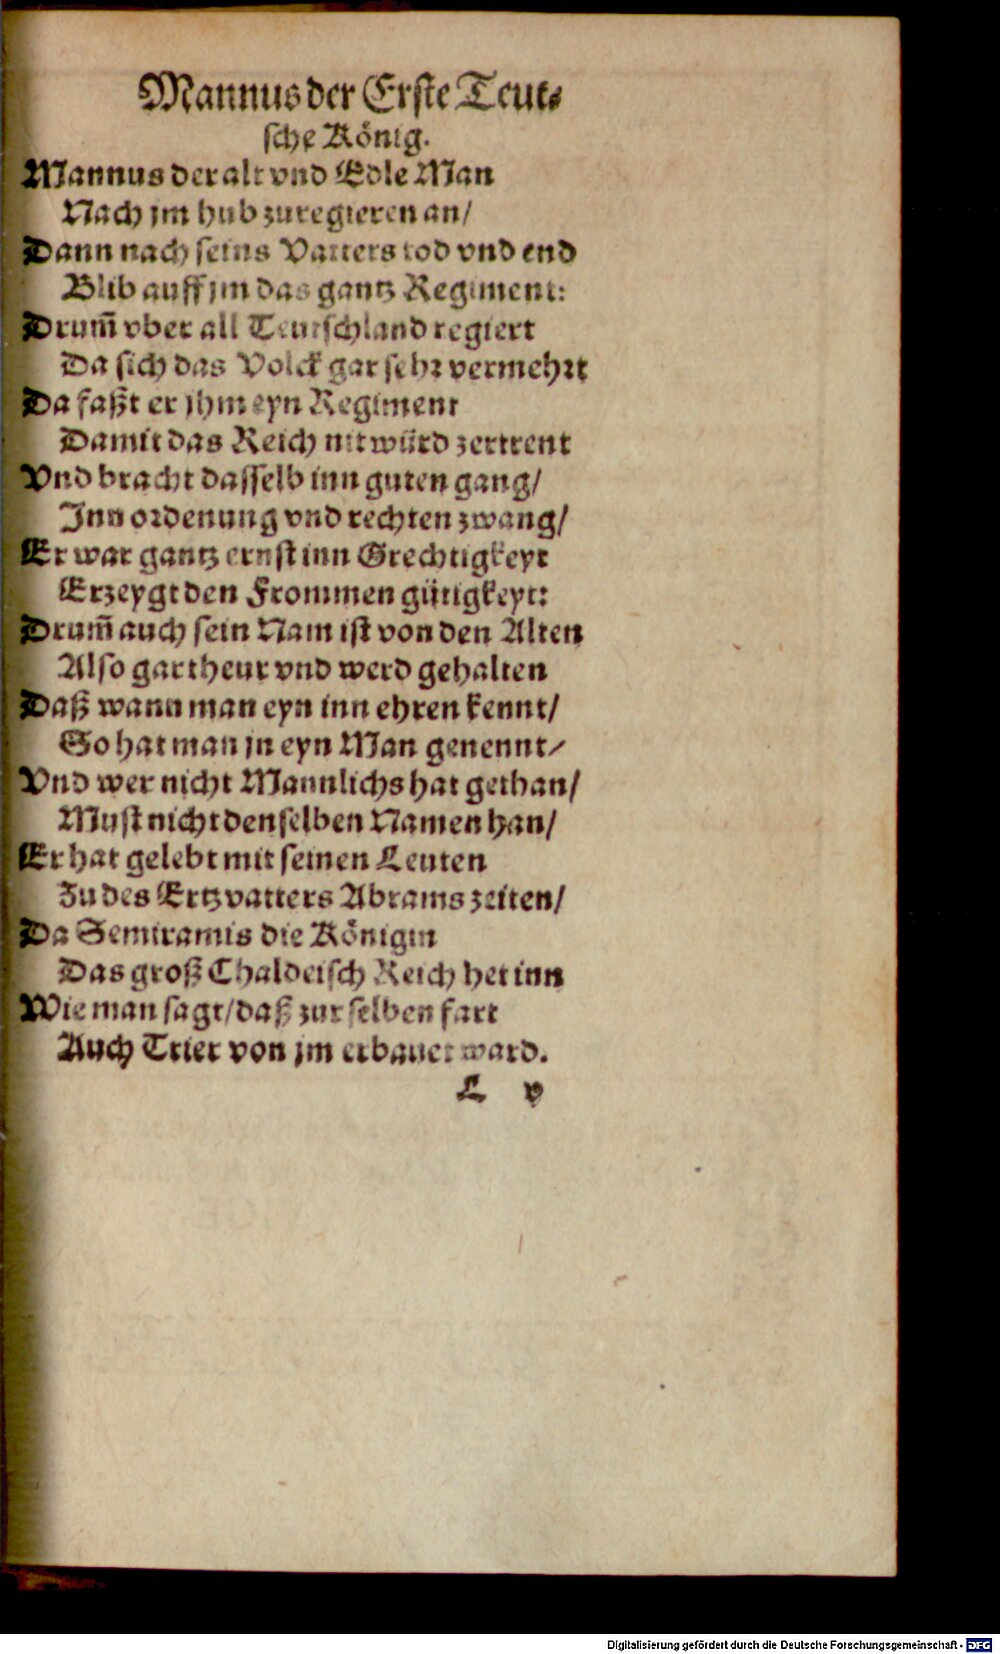 Mannus der Erste Teut⸗
sche König.
Mannus der alt vnd Edle Man
Nach jm hub zuregieren an/
Dann nach seins Vatters tod vnd end
Blib auff jm das gantz Regiment:
Drum̃ vber all Teutschland regiert
Da sich das Volck gar sehr vermehrt
Da faßt er jhm eyn Regiment
Damit das Reich nit würd zertrent
Vnd bracht dasselb inn guten gang/
Inn ordenung vnd rechten zwang/
Er war gantz ernst inn Grechtigkeyt
Erzeygt den Frommen gütigkeyt:
Drum̃ auch sein Nam ist von den Alten
Also gar theur vnd werd gehalten
Daß wann man eyn inn ehren kennt/
So hat man jn eyn Man genennt/
Vnd wer nicht Mannlichs hat gethan/
Must nicht denselben Namen han/
Er hat gelebt mit seinen Leuten
Zu des Ertzvatters Abrams zeiten/
Da Semiramis die Königin
Das groß Chaldeisch Reich het inn
Wie man sagt/daß zur selben fart
Auch Trier von jm erbauet ward.
L v
Digitalisierung gefördert durch die Deutsche Forschungsgemeinschaft - DFG